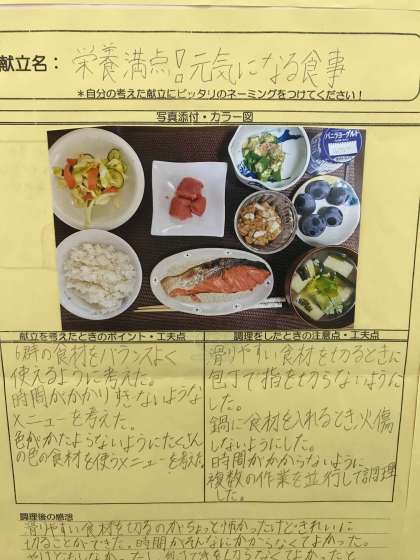 献立名： 栄養満点！元気になる食事
＊自分の考えた献立にピッタリのネーミングをつけてください！
写真添付・カラー図
バニラヨーグルト
献立を考えたときのポイント・工夫点
6群の食材をバランスよく
使えるように考えた。
時間がかかりすぎないような
メニューを考えた。
色がかたよらないようにたくさん
の色の食材を使うメニューを考えた。
調理をしたときの注意点・工夫点
滑りやすい食材を切るときに
包丁で指を切らないように
した。
鍋に食材を入れるとき、火傷
しないようにした。
時間がかからないように
複数の作業を並行して調理
した。
調理後の感想
滑りやすい食材を切るのがちょっと怖かったけどきれいに
切ることができた。時間がそんなにかからなくてよかった。